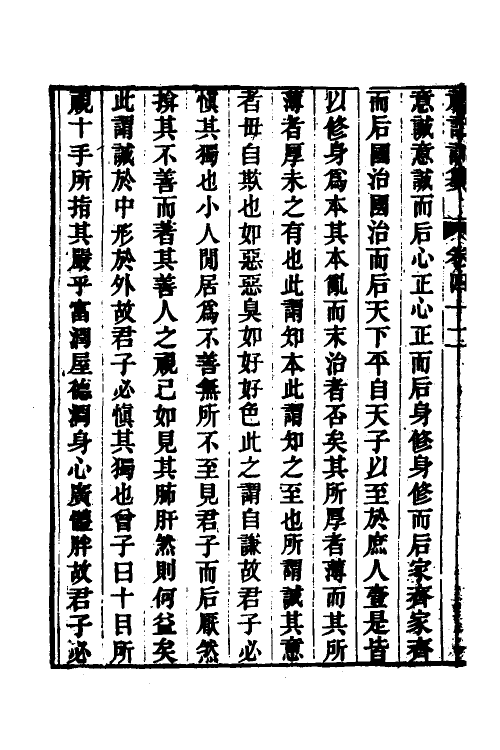 卷四 十二
意誠意誠而后心正心正而后身修身修而后家齊家齊
而后國治國治而后天下平自天子以至於庶人壹是皆
以修身爲本其本亂而末治者否矣其所厚者薄而其所
薄者厚未之有也此謂知本此謂知之至也所謂誠其意
者毋自欺也如惡惡臭如好好色此之謂自謙故君子必
慎其獨也小人閒居爲不善無所不至見君子而后厭然
揜其不善而著其善人之視己如見其肺肝然則何益矣
此謂誠於中形於外故君子必慎其獨也曾子曰十目所
視十手所指其嚴乎富潤屋德潤身心廣體胖故君子必